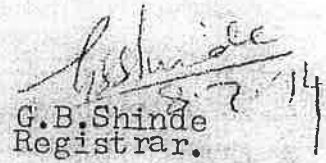 GBShinde
8.7.14
G.B.Shinde
Registrar.